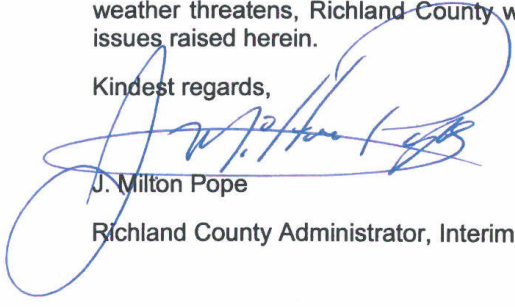 weather threatens, Richland County
issues raised herein.
Kindest regards,
J. Milton Pope
J. Milton Pope
Richland County Administrator, Interim